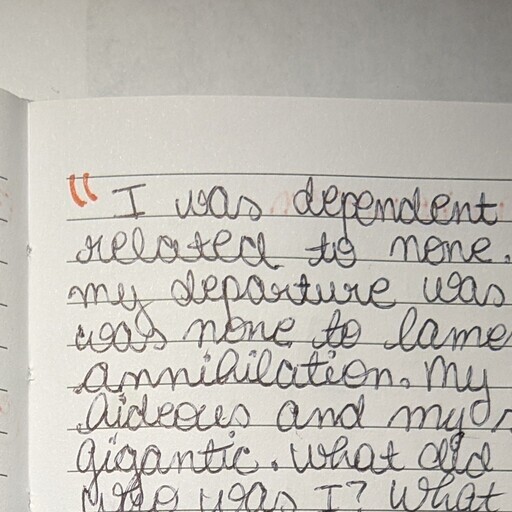 “I was dependent
related to none.
my departure was
was none to lame
annihilation. My
hideous and my
gigantic. What did
Who was I? What